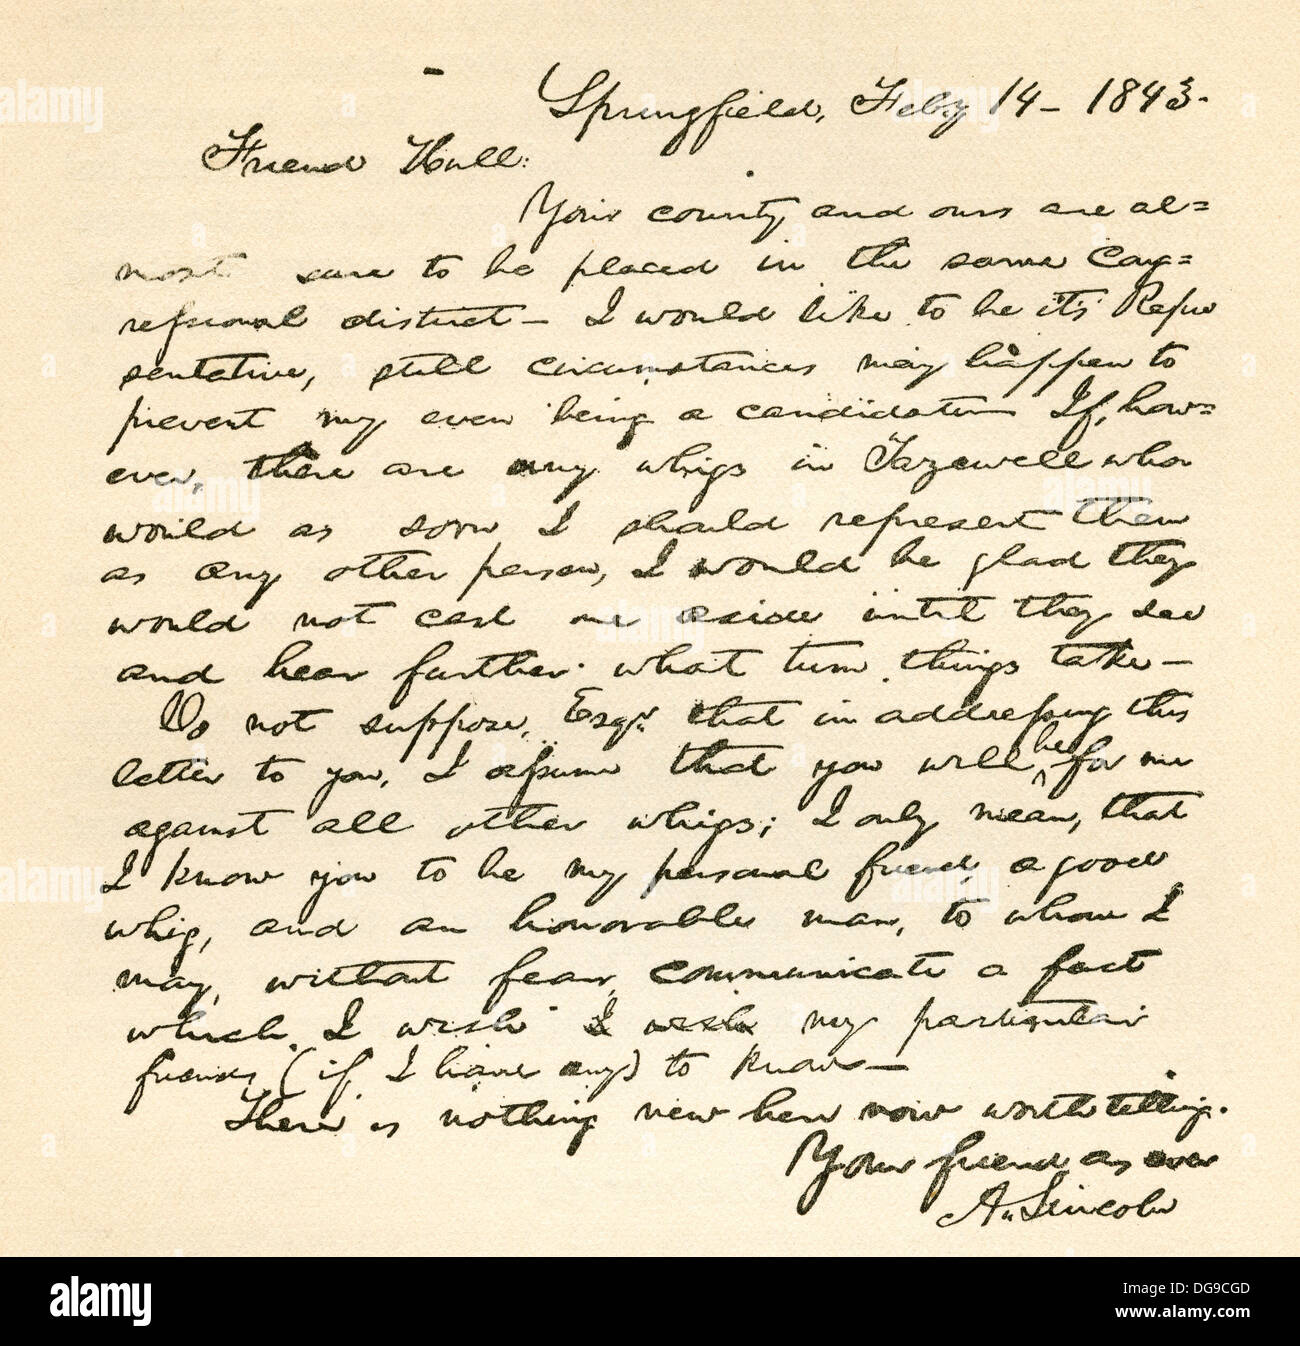 Springfield, Feby 14 - 1843.
Friend Hull:
Your county and ours are al=
most sure to be placed in the same Con=
gressional district - I would like to be it's Repre
sentative, still circumstances may happen to
prevent my even being a candidate - If, how=
ever, there are any whigs in Tazewell who
would as soon I should represent them
as any other person, I would be glad they
would not cast me aside until they see
and hear further what turn things take -
Do not suppose, Esqr. that in addressing this
letter to you, I assume that you will be for me
against all other whigs; I only mean, that
I know you to be my personal friend, a good
whig, and an honorable man, to whom I
may, without fear, communicate a fact
which I wish I wish my particular
friends (if I have any) to know -
There is nothing new here now worth telling.
Your friend as ever
A. Lincoln
alamy
Image ID: DG9CGD
www.alamy.com